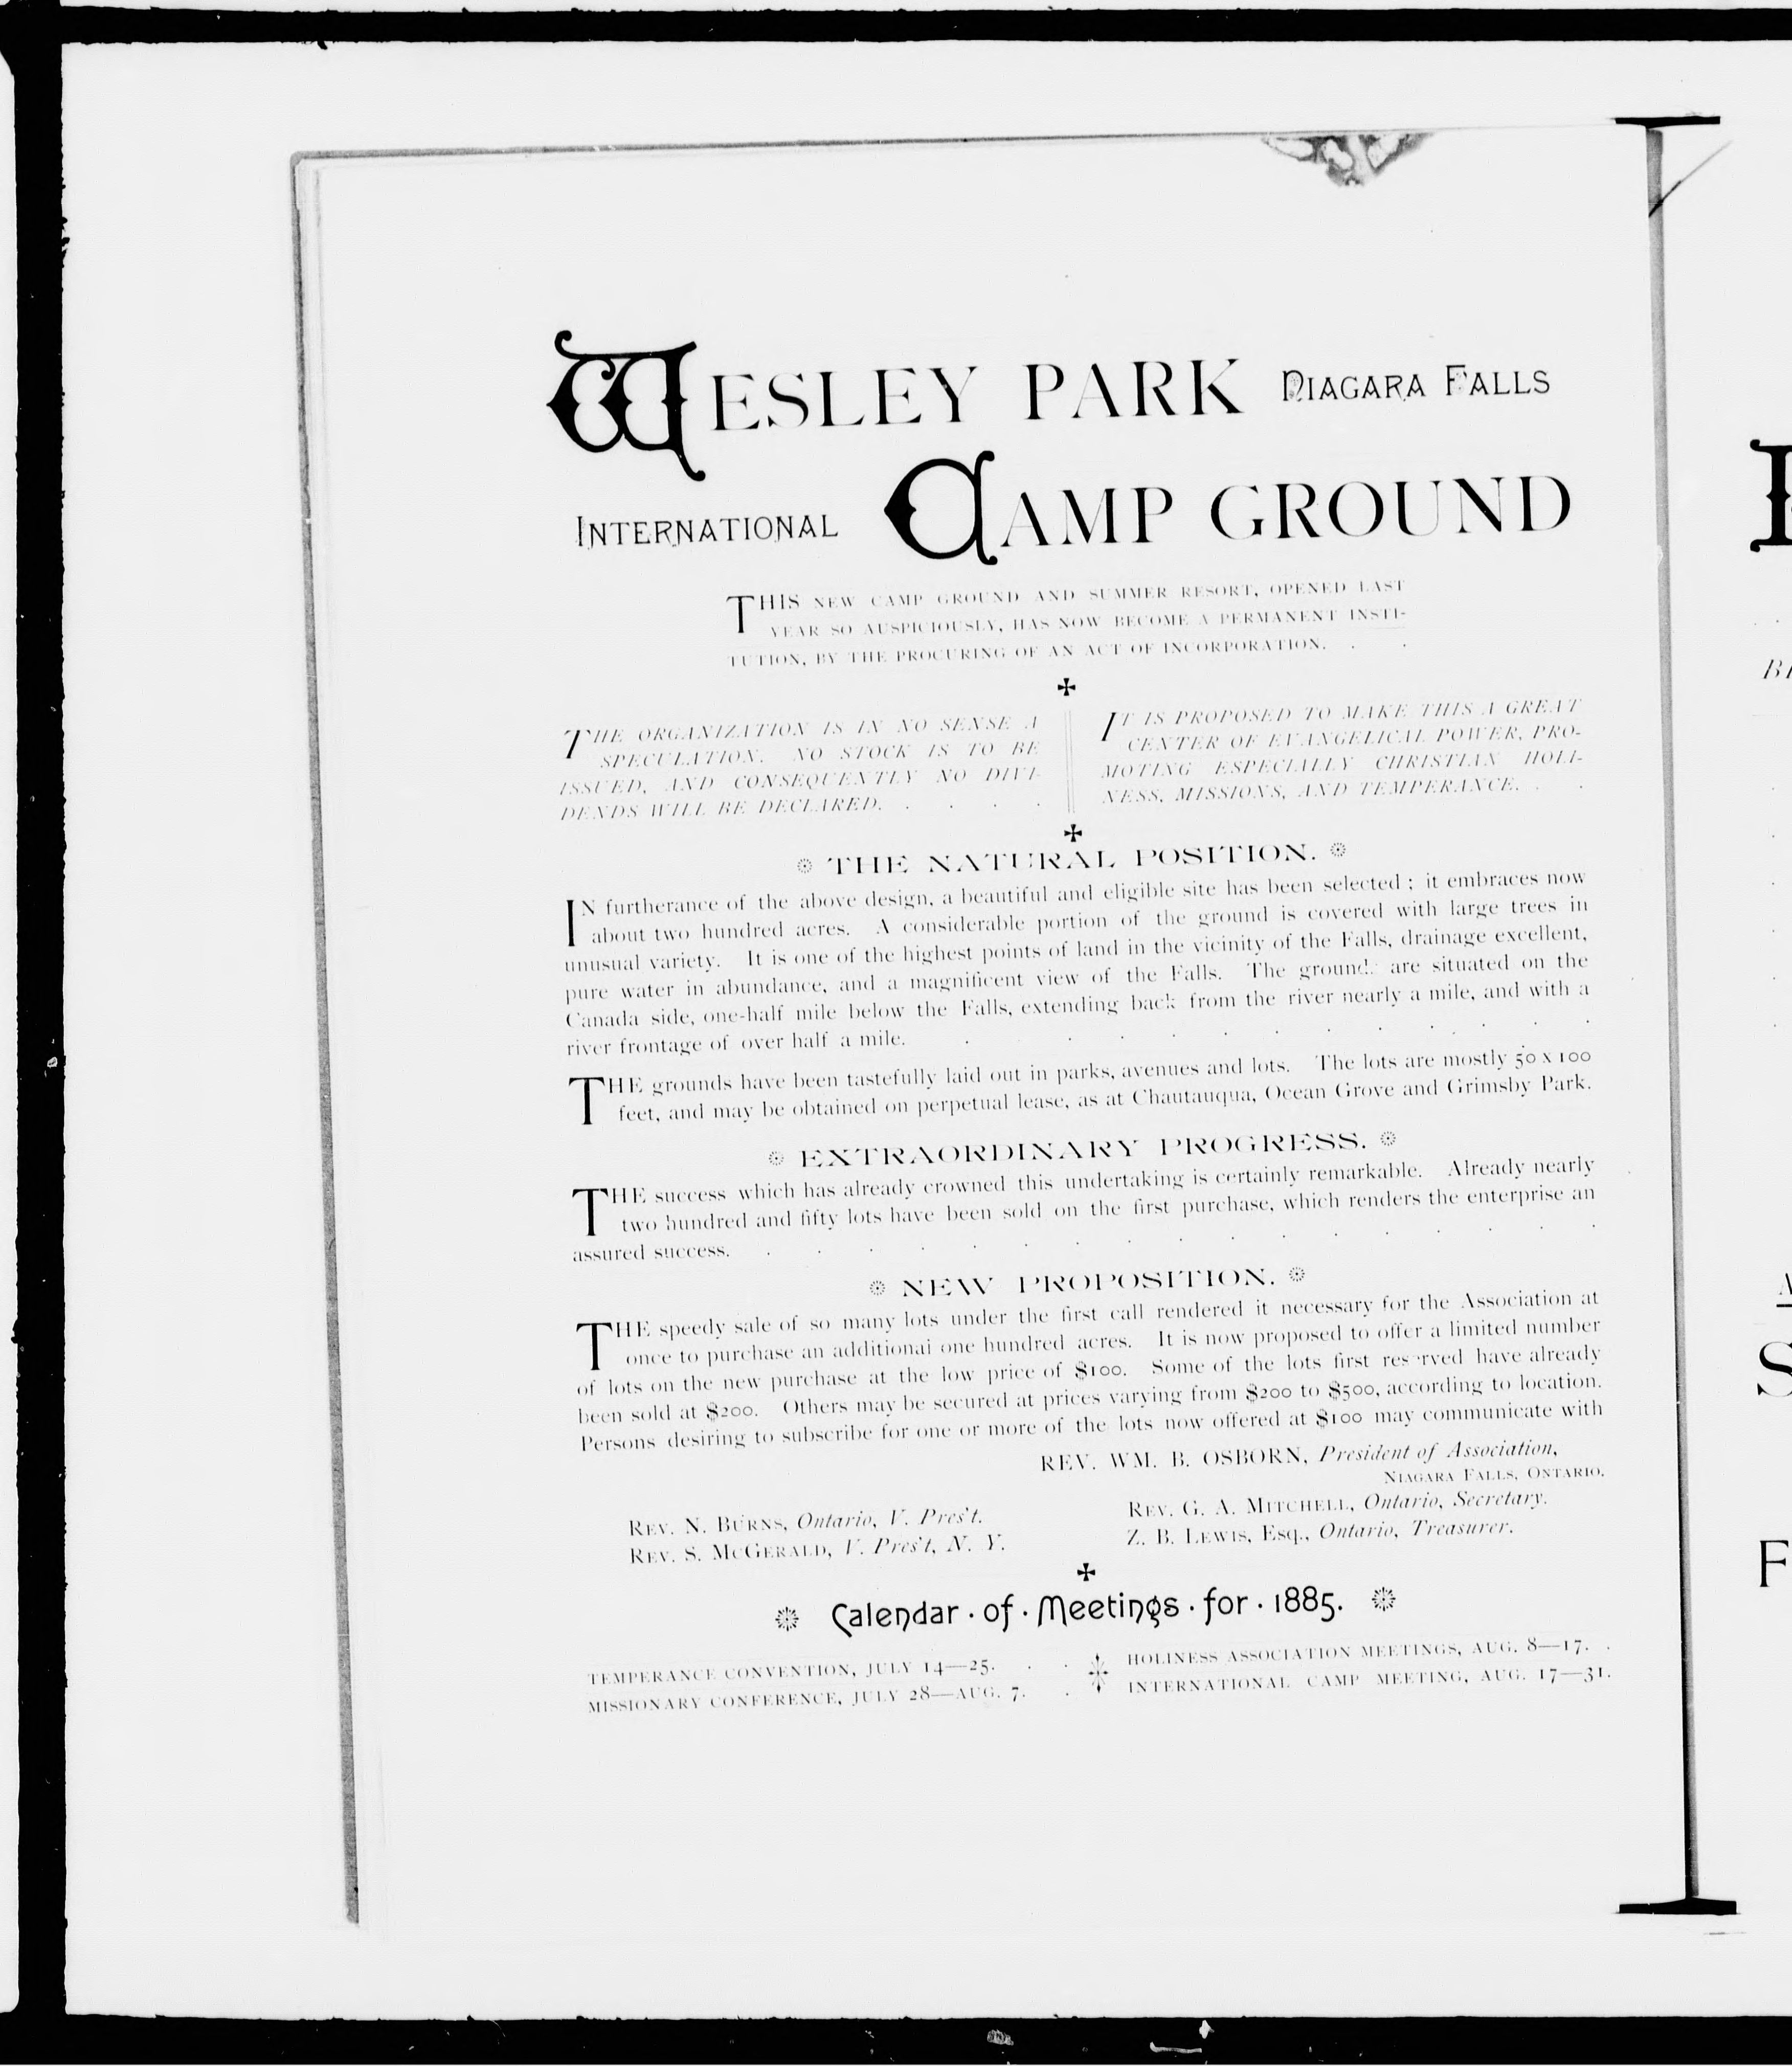 WESLEY PARK NIAGARA FALLS
INTERNATIONAL CAMP GROUND
THIS NEW CAMP GROUND AND SUMMER RESORT, OPENED LAST
YEAR SO AUSPICIOUSLY, HAS NOW BECOME A PERMANENT INSTI-
TUTION, BY THE PROCURING OF AN ACT OF INCORPORATION. . .
THE ORGANIZATION IS IN NO SENSE A
SPECULATION. NO STOCK IS TO BE
ISSUED, AND CONSEQUENTLY NO DIVI-
DENDS WILL BE DECLARED. . . . .
IT IS PROPOSED TO MAKE THIS A GREAT
CENTER OF EVANGELICAL POWER, PRO-
MOTING ESPECIALLY CHRISTIAN HOLI-
NESS, MISSIONS, AND TEMPERANCE. . .
THE NATURAL POSITION.
IN furtherance of the above design, a beautiful and eligible site has been selected; it embraces now
about two hundred acres. A considerable portion of the ground is covered with large trees in
unusual variety. It is one of the highest points of land in the vicinity of the Falls, drainage excellent,
pure water in abundance, and a magnificent view of the Falls. The grounds are situated on the
Canada side, one-half mile below the Falls, extending back from the river nearly a mile, and with a
river frontage of over half a mile.
THE grounds have been tastefully laid out in parks, avenues and lots. The lots are mostly 50 x 100
feet, and may be obtained on perpetual lease, as at Chautauqua, Ocean Grove and Grimsby Park.
EXTRAORDINARY PROGRESS.
THE success which has already crowned this undertaking is certainly remarkable. Already nearly
two hundred and fifty lots have been sold on the first purchase, which renders the enterprise an
assured success.
NEW PROPOSITION.
THE speedy sale of so many lots under the first call rendered it necessary for the Association at
once to purchase an additional one hundred acres. It is now proposed to offer a limited number
of lots on the new purchase at the low price of $100. Some of the lots first reserved have already
been sold at $200. Others may be secured at prices varying from $200 to $500, according to location.
Persons desiring to subscribe for one or more of the lots now offered at $100 may communicate with
REV. WM. B. OSBORN, President of Association,
NIAGARA FALLS, ONTARIO.
REV. N. BURNS, Ontario, V. Pres't.
REV. S. MCGERALD, V. Pres't, N. Y.
REV. G. A. MITCHELL, Ontario, Secretary.
Z. B. LEWIS, Esq., Ontario, Treasurer.
Calendar · of · Meetings · for · 1885.
TEMPERANCE CONVENTION, JULY 14—25. . .
MISSIONARY CONFERENCE, JULY 28—AUG. 7. .
HOLINESS ASSOCIATION MEETINGS, AUG. 8—17. .
INTERNATIONAL CAMP MEETING, AUG. 17—31.